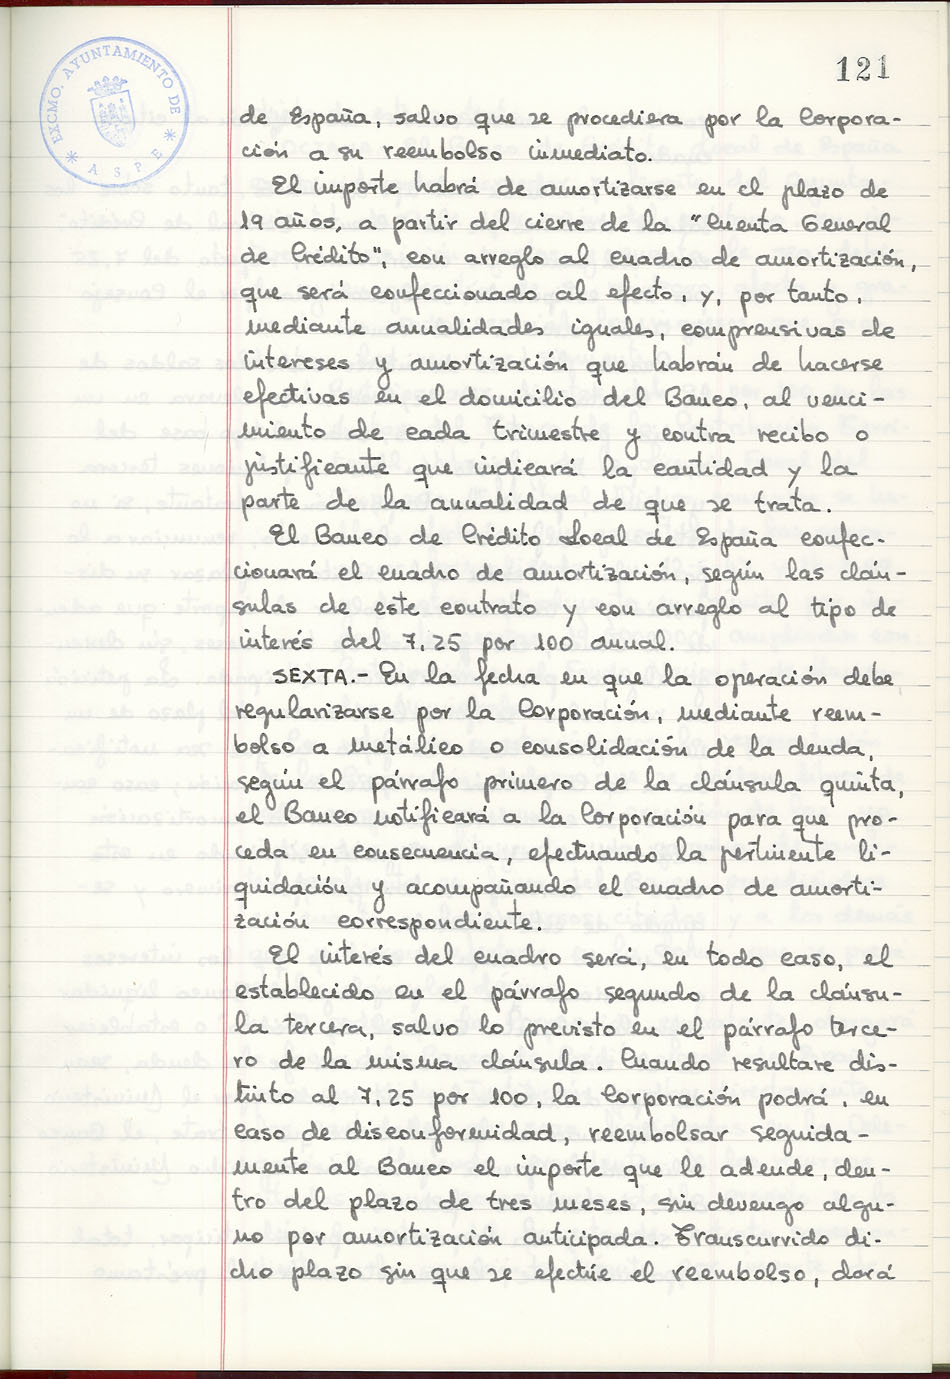 EXCMO. AYUNTAMIENTO DE
* ASPE *
121
de España, salvo que se procediera por la Corpora-
ción a su reembolso inmediato.
El importe habrá de amortizarse en el plazo de
19 años, a partir del cierre de la "Cuenta General
de Crédito", con arreglo al cuadro de amortización,
que será confeccionado al efecto, y, por tanto,
mediante anualidades iguales, comprensivas de
intereses y amortización que habrán de hacerse
efectivas en el domicilio del Banco, al venci-
miento de cada trimestre y contra recibo o
justificante que indicará la cantidad y la
parte de la anualidad de que se trata.
El Banco de Crédito Local de España confec-
cionará el cuadro de amortización, según las cláu-
sulas de este contrato y con arreglo al tipo de
interés del 7,25 por 100 anual.
SEXTA.- En la fecha en que la operación debe
regularizarse por la Corporación, mediante reem-
bolso a metálico o consolidación de la deuda,
según el párrafo primero de la cláusula quinta,
el Banco notificará a la Corporación para que pro-
ceda en consecuencia, efectuando la pertinente li-
quidación y acompañando el cuadro de amorti-
zación correspondiente.
El interés del cuadro será, en todo caso, el
establecido en el párrafo segundo de la cláusu-
la tercera, salvo lo previsto en el párrafo terce-
ro de la misma cláusula. Cuando resultare dis-
tinto al 7,25 por 100, la Corporación podrá, en
caso de disconformidad, reembolsar seguida-
mente al Banco el importe que le adeude, den-
tro del plazo de tres meses, sin devengo algu-
no por amortización anticipada. Transcurrido di-
cho plazo sin que se efectúe el reembolso, dará